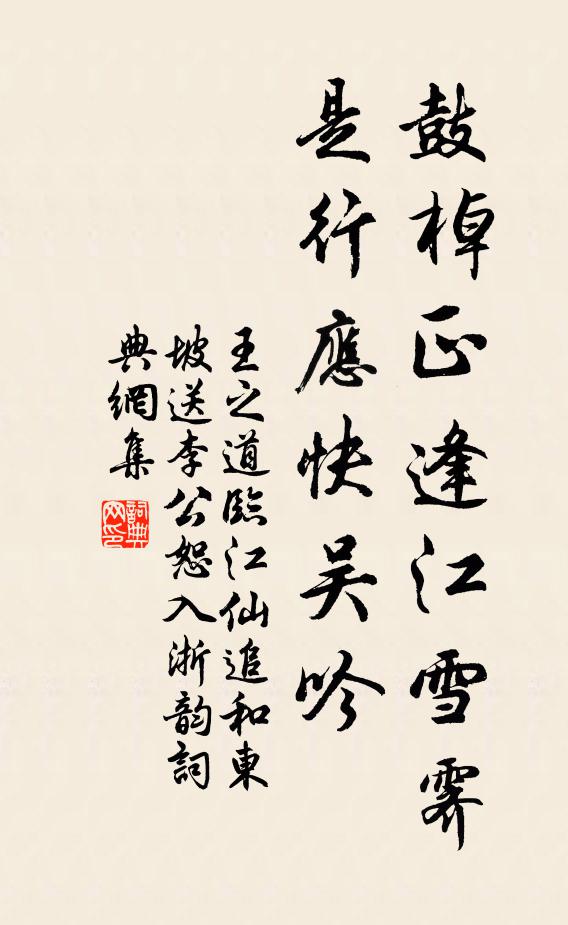 鼓棹正逢江雪霽
是行應快吴吟
王之道臨江仙追和東
坡送李公恕入浙韵詞
典網集
詞典网印